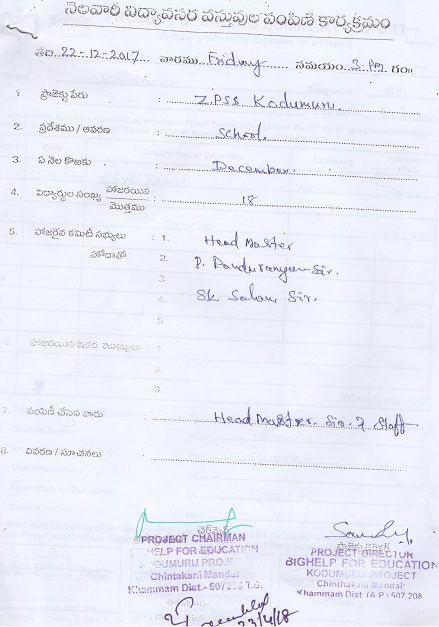 నెలవారీ విద్యావసర వస్తువుల పంపిణీ కార్యక్రమం
తేది 22-12-2017 వారము Friday సమయం 3. PM గం॥
1. ప్రాజెక్టు పేరు : Z.P.S.S Kodumuru.
2. ప్రదేశము / ఆవరణ : School.
3. ఏ నెల కొఱకు : December.
4. విద్యార్థుల సంఖ్య హాజరయిన : 18
మొత్తము
5. హాజరైన కమిటీ సభ్యులు : 1. Head Master
హోదాతో 2. P. Panduranga Sir.
3.
4. Sk. Sir.
5.
6. హాజరయిన ఇతర ముఖ్యులు : 1
2.
3.
7. పంపిణీ చేసిన వారు : Head Master. Sir. & Staff
8. వివరణ / సూచనలు :
ఛైర్మన్
PROJECT CHAIRMAN
HELP FOR EDUCATION
KODUMURU PROJ
Chintakani Mandal
Khammam Dist.- 507208 T.S.
ప్రాజెక్టు డైరెక్టర్
PROJECT DIRECTOR
BIGHELP FOR EDUCATION
KODUMURU PROJECT
Chinthakani Mandal
Khammam Dist (A.P) 507 208
23/4/18